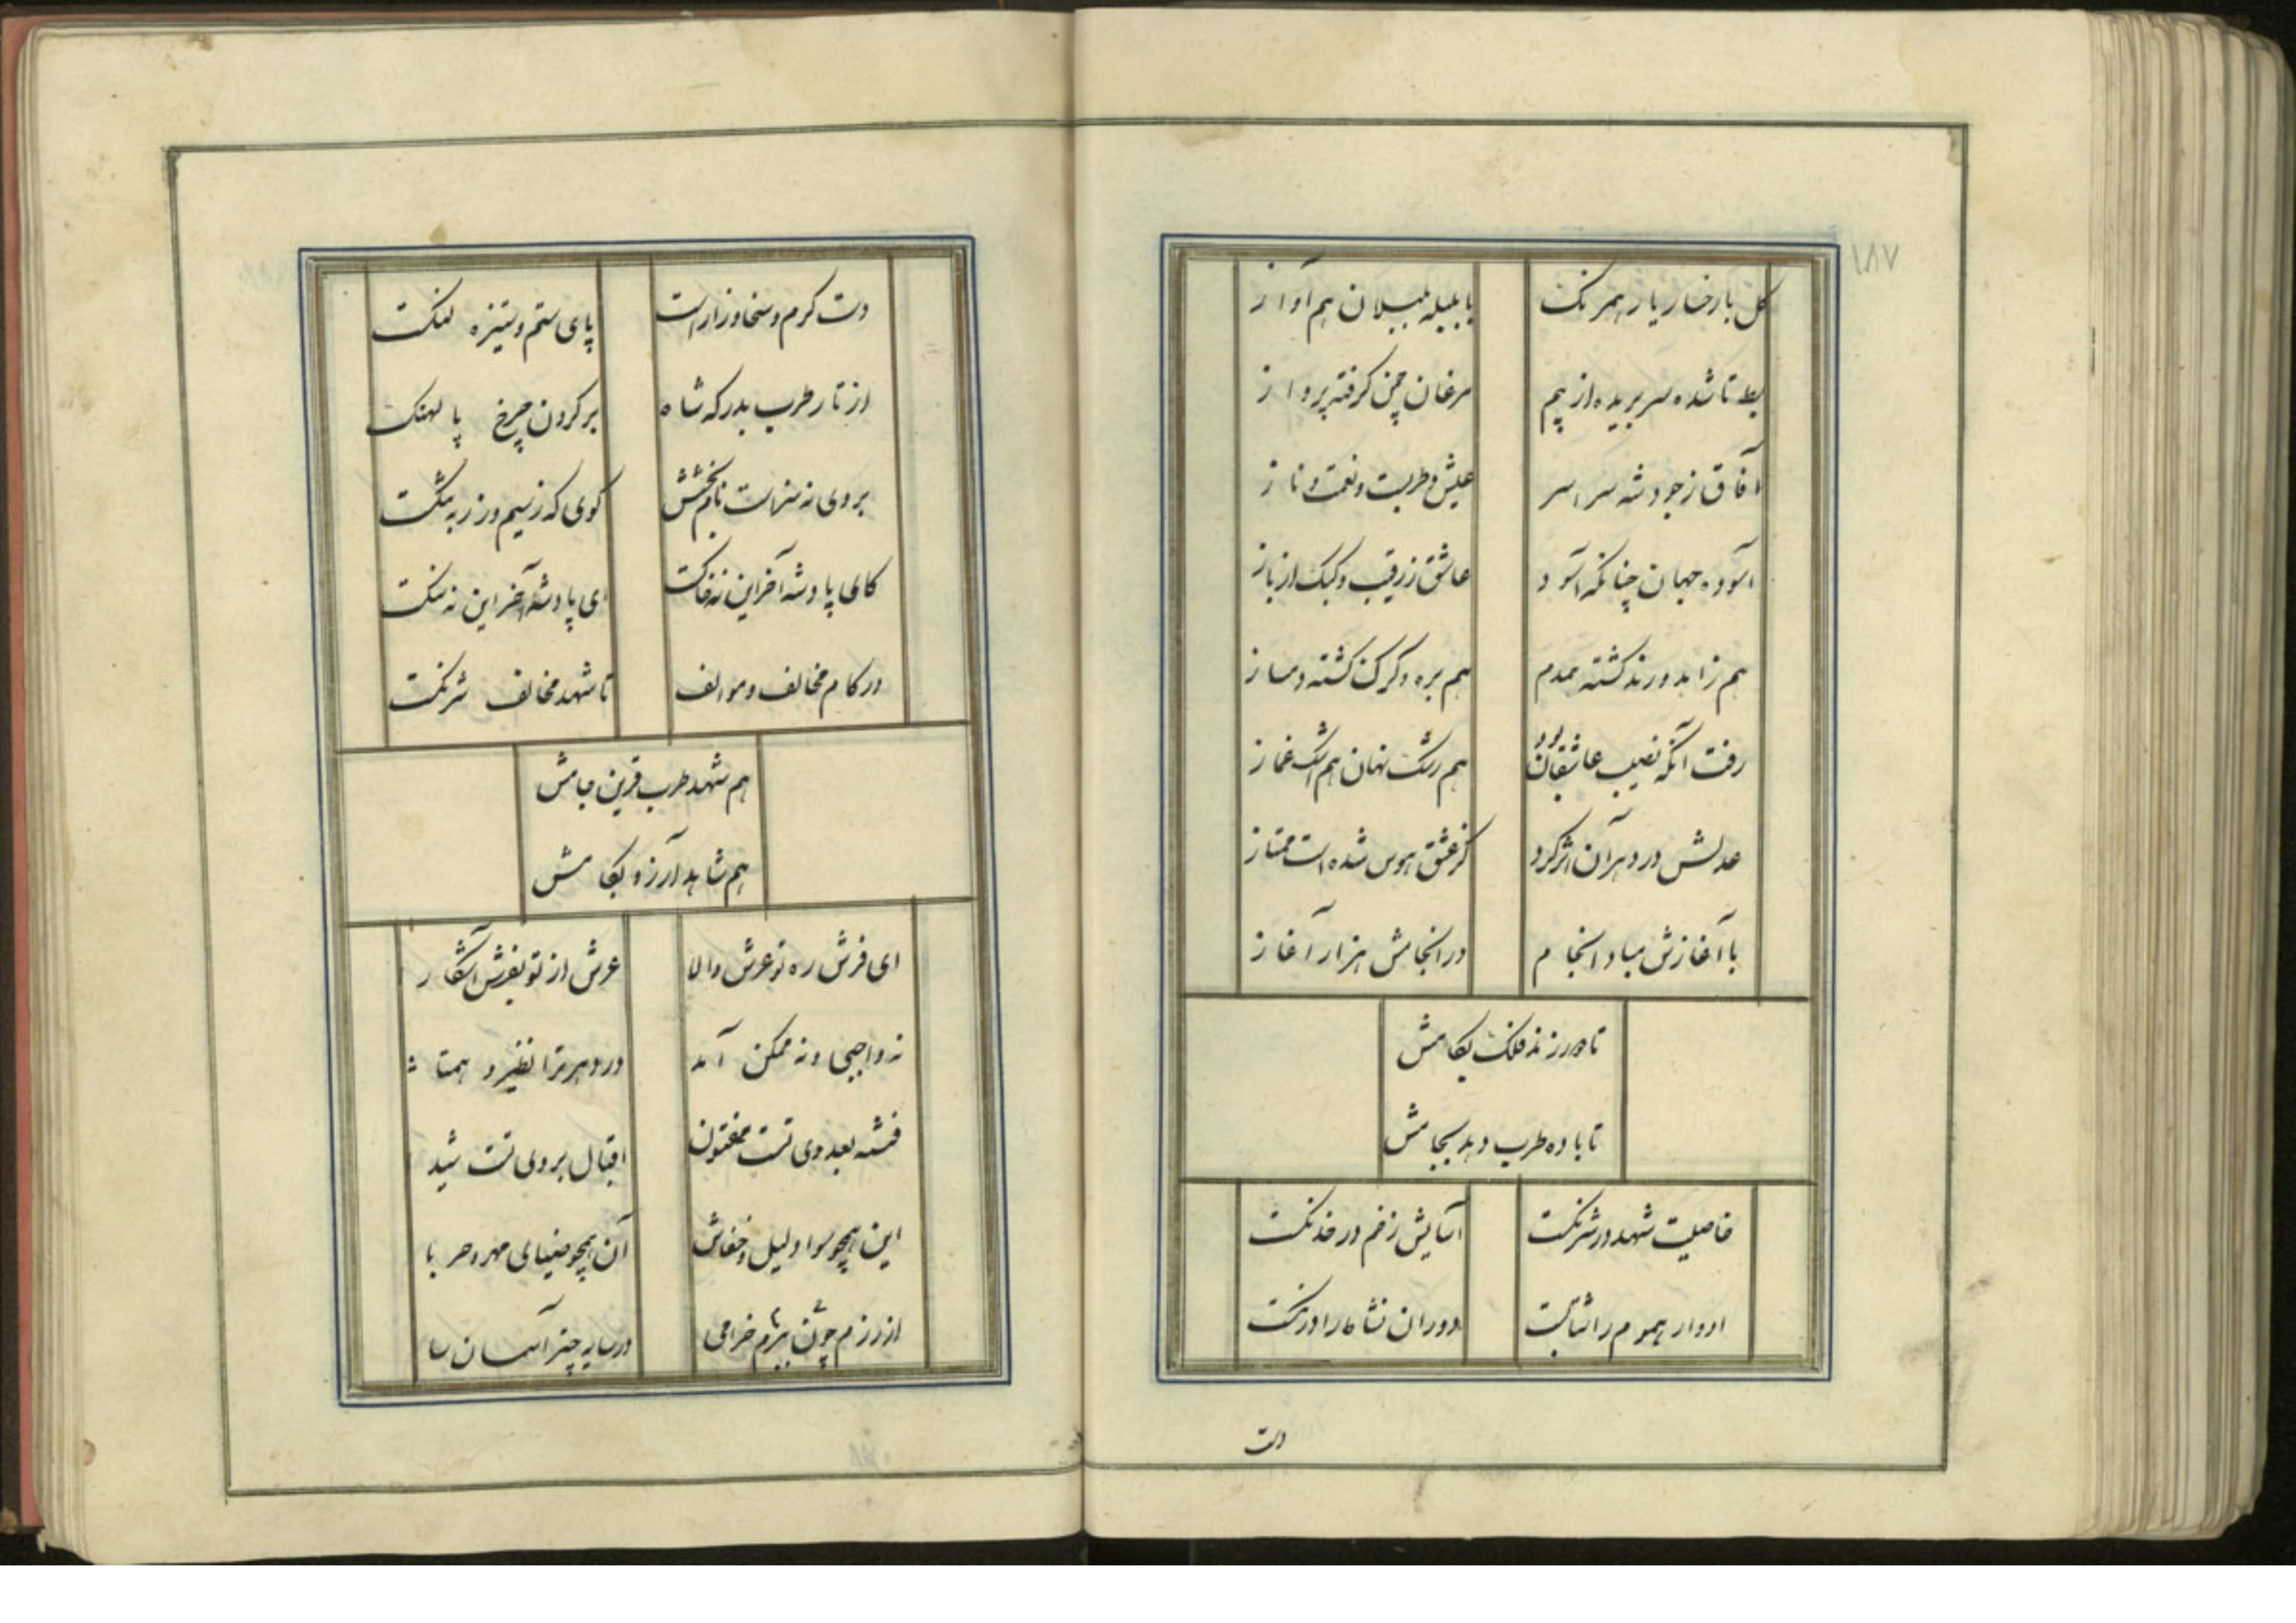 ۱۸۷
کل با رخسار یار همرنک با بلبله بلبلان هم آواز
بط تا شده سر بریده از بیم مرغان چمن کرفته پرواز
آفاق ز جود شه سراسر عیش و طربست و نعمت و ناز
آسوده جهان چنانکه آسود عاشق ز رقیب و کبک از باز
هم زاهد و رند کشته همدم هم بره و کرک کشته دمساز
رفت آنکه نصیب عاشقان بود هم رشک نهان هم اشک غماز
عدلش در دهر آن اثر کرد کز عشق هوس شده است ممتاز
با آغازش مباد انجام در انجامش هزار آغاز
تا دور زند فلک بکامش
تا باده طرب دهد بجامش
خاصیت شهد در شرنکست آسایش زخم در خدنکست
ادوار هموم را شتابست دوران نشاط را درنکست
دست
دست کرم و سخا درازست پای ستم و ستیزه لنکست
از تار طرب بدرکه شاه بر کردن چرخ پالهنک
بر وی نه سزاست نام بخشش کوی که ز سیم و زر به تنکست
کای پادشه آخر این نه خاکست ای پادشه آخر این نه سنکست
در کام مخالف و موالف تا شهد مخالف شرنکست
هم شهد طرب قرین جامش
هم شاهد آرزو بکامش
ای فرش ره تو عرش والا عرش از تو بفرش آشکارا
نه واجبی و نه ممکن آمد در دهر ترا نظیر و همتا
فتنه بعدوی تست مفتون اقبال بروی تست شیدا
این همچو سواد لیل و خفاش آن همچو ضیای مهر و حربا
از رزم چو شن ببزم خرامی در سایه چتر آسمان سا